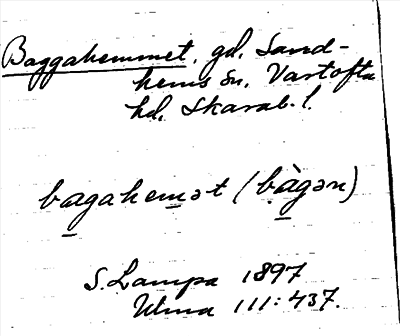 Baggahemmet, gd, Sand-
hems sn, Vartofta
hd, Skarab. l.
bagahemət (bàgən)
S. Lampa 1897
Ulma 111:437.